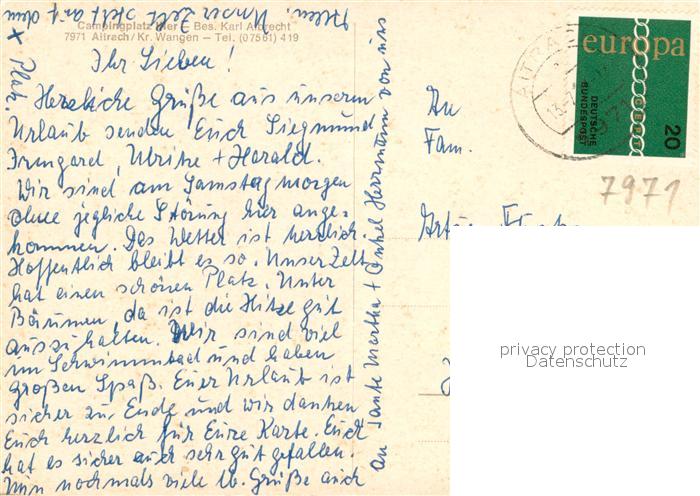 Campingplatz Iller - Bes. Karl Albrecht
7971 Aitrach/Kr. Wangen — Tel. (07561) 419
Ihr Lieben!
Herzliche Grüße aus unserem
Urlaub senden Euch Siegmund
Irmgard, Ulrike + Harald.
Wir sind am Samstagmorgen
ohne jegliche Störung hier ange-
kommen. Das Wetter ist herrlich.
Hoffentlich bleibt es so. Unser Zelt
hat einen schönen Platz. Unter
Bäumen, da ist die Hitze gut
auszuhalten. Wir sind viel
im Schwimmbad und haben
großen Spaß. Euer Urlaub ist
sicher zu Ende und wir danken
Euch herzlich für Eure Karte. Euch
hat es sicher auch sehr gut gefallen.
Nun nochmals viele lb. Grüße auch
an Tante Martha + Onkel Herrmann von uns
allen. Unser Zelt steht auf dem
x Platz.
An
Fam.
europa
CEPT
DEUTSCHE
BUNDESPOST
20
7971
privacy protection
Datenschutz